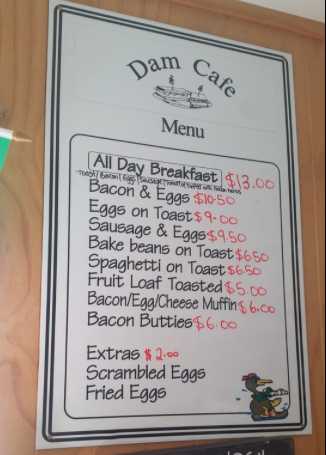 Dam Cafe
Menu
All Day Breakfast $13.00
Toast/Bacon/Eggs/Sausage/Tomato topped with
Bacon & Eggs $10.50
Eggs on Toast $9.00
Sausage & Eggs $9.50
Bake beans on Toast $6.50
Spaghetti on Toast $6.50
Fruit Loaf Toasted $5.00
Bacon/Egg/Cheese Muffin $6.00
Bacon Butties $6.00
Extras $2.00
Scrambled Eggs
Fried Eggs